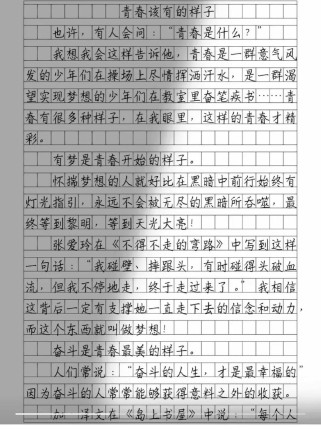 青春该有的样子
也许，有人会问：“青春是什么？”
我想我会这样告诉他，青春是一群意气风
发的少年们在操场上尽情挥洒汗水，是一群渴
望实现梦想的少年们在教室里奋笔疾书……青
春有很多种样子，在我眼里，这样的青春才精
彩。
有梦是青春开始的样子。
怀揣梦想的人就好比在黑暗中前行始终有
灯光指引，永远不会被无尽的黑暗所吞噬，最
终等到黎明，等到天光大亮！
张爱玲在《不得不走的弯路》中写到这样
一句话：“我碰壁、摔跟头，有时碰得头破血
流，但我不停地走，终于走过来了。”我相信
这背后一定有支撑她一直走下去的信念和动力，
而这个东西就叫做梦想！
奋斗是青春最美的样子。
人们常说：“奋斗的人生，才是最幸福的”
因为奋斗的人常常能够获得意料之外的收获。
加 泽文在《岛上书屋》中说：“每个人